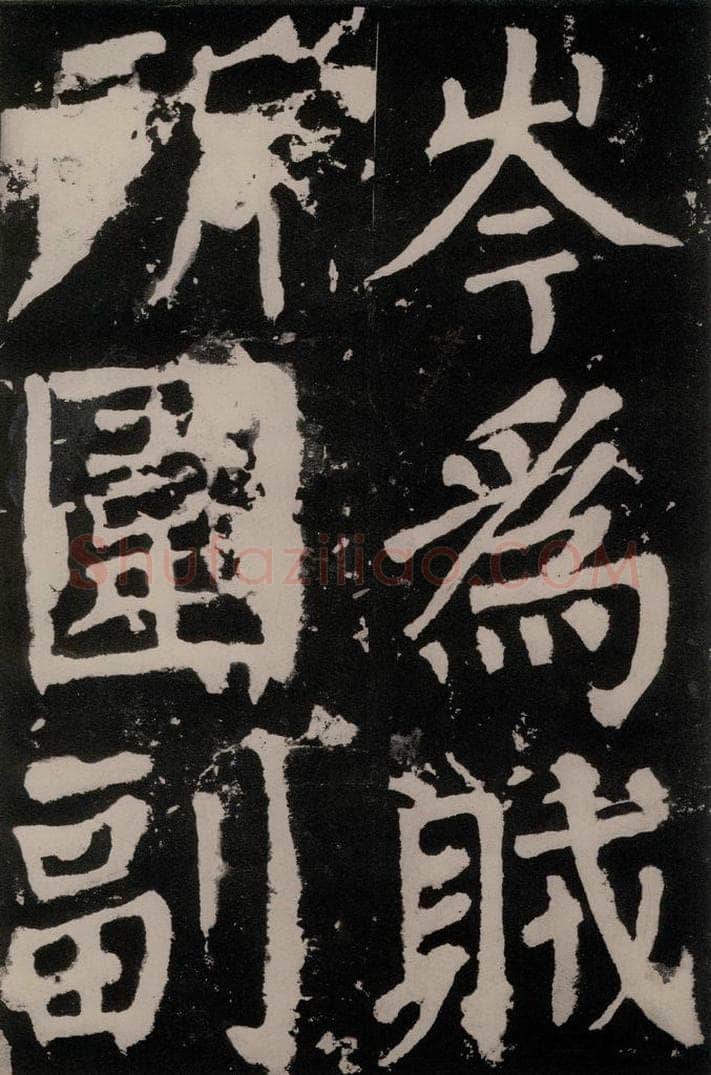 岑為賊
所圍副
Shufaziliao.COM